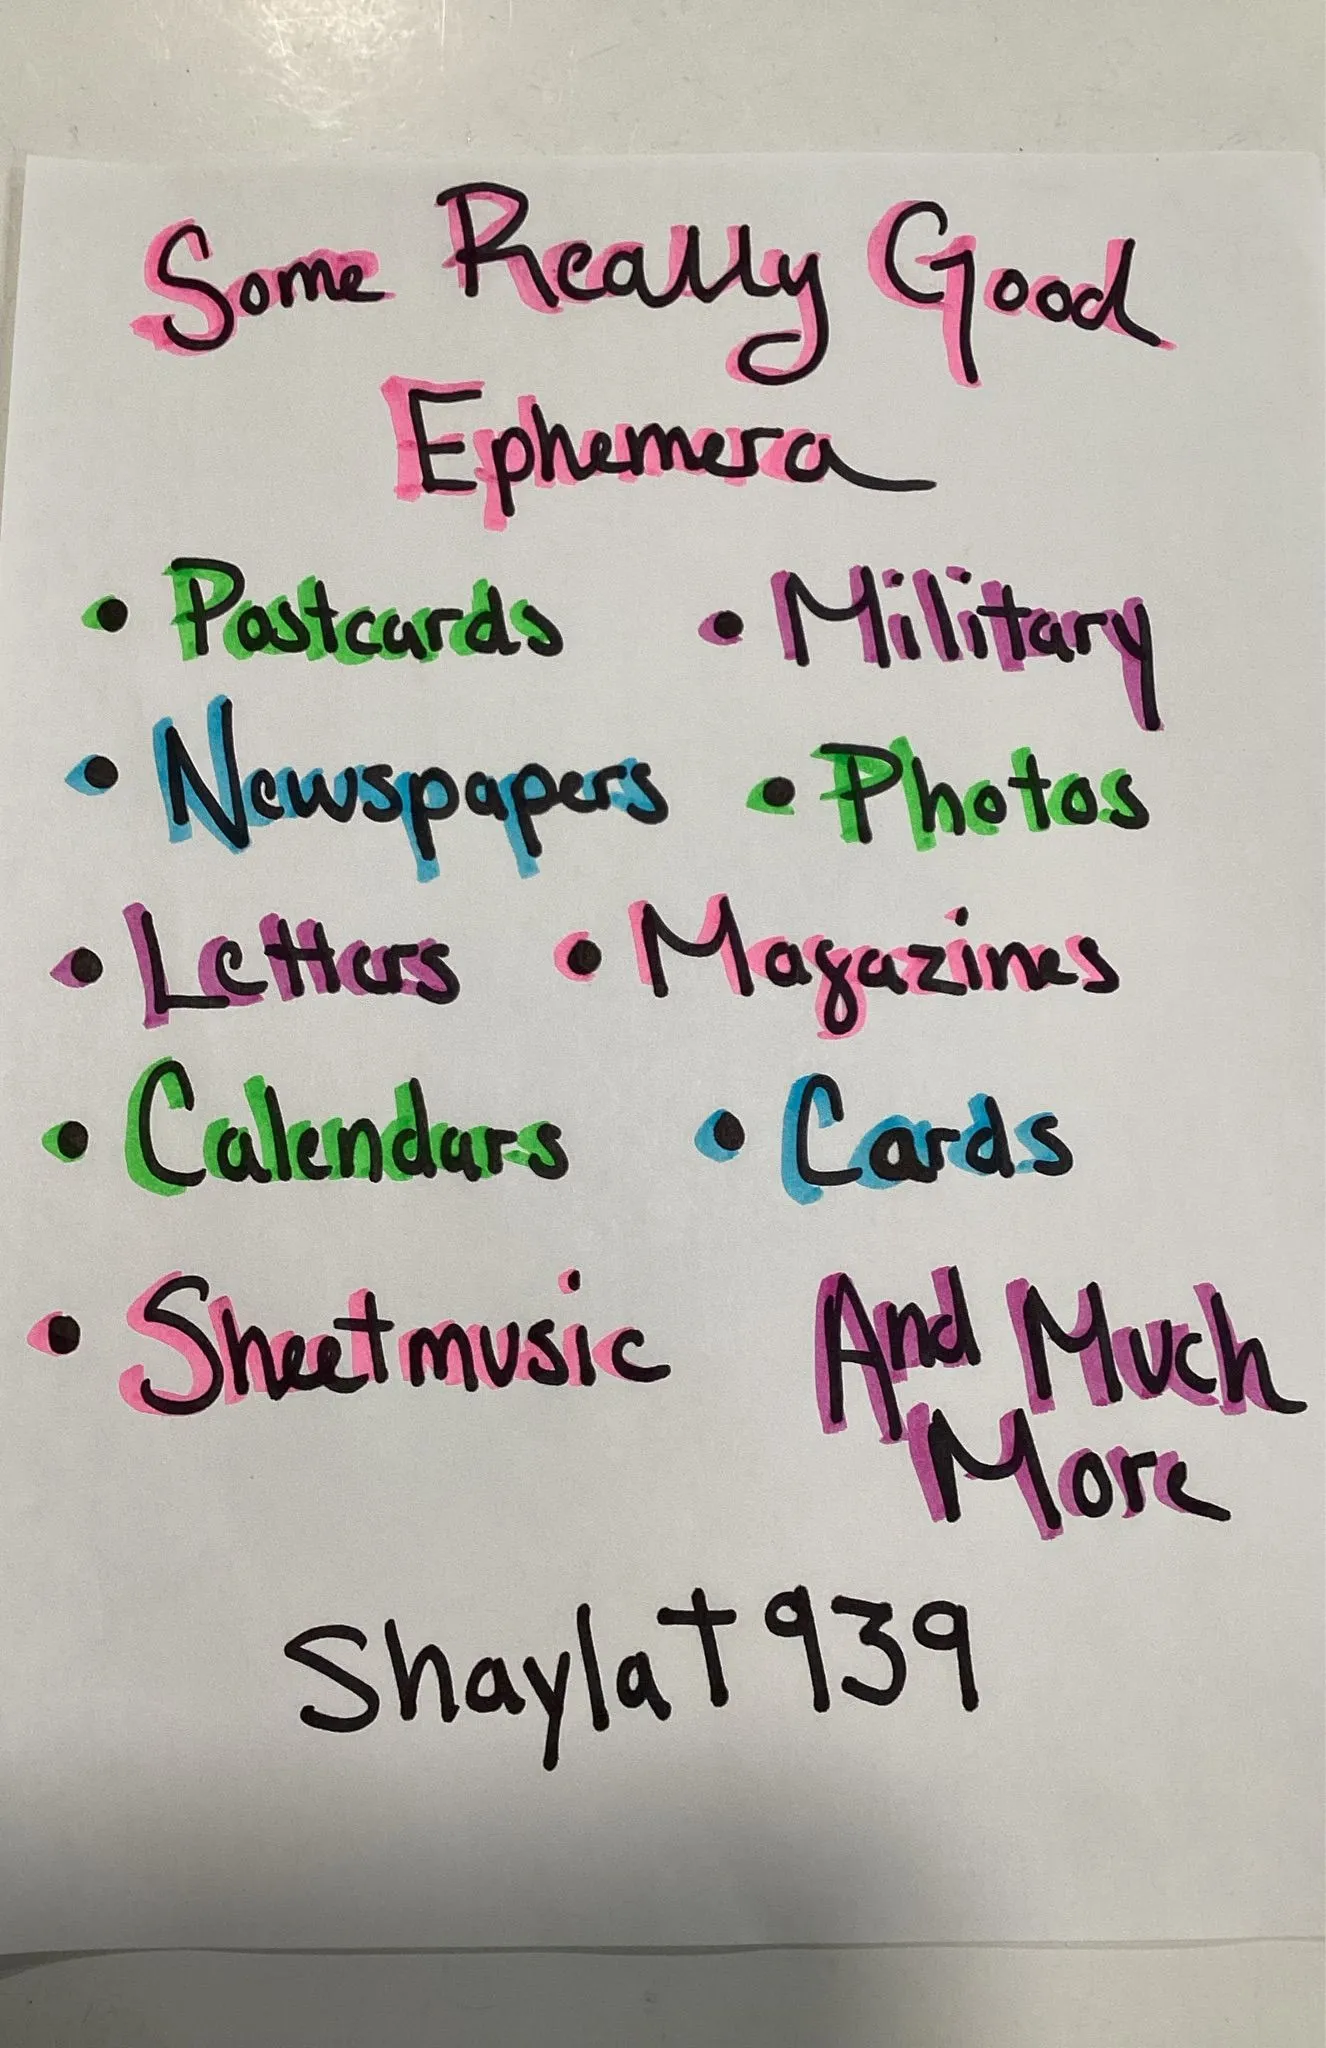 Some Really Good
Ephemera
• Postcards • Military
• Newspapers • Photos
• Letters • Magazines
• Calendars • Cards
• Sheetmusic And Much
More
Shaylat939